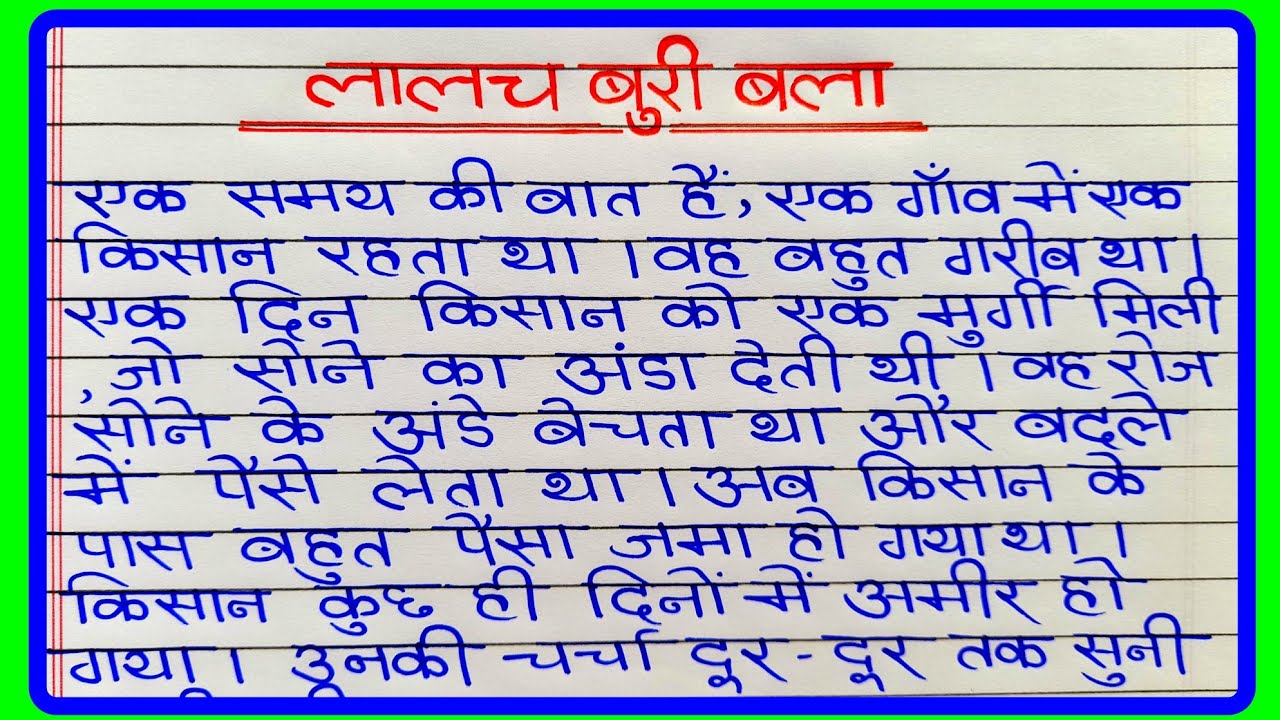 लालच बुरी बला
एक समय की बात हैं, एक गाँव में एक
किसान रहता था । वह बहुत गरीब था ।
एक दिन किसान को एक मुर्गी मिली
, जो सोने का अंडा देती थी । वह रोज
सोने के अंडे बेचता था और बदले
में पैसे लेता था । अब किसान के
पास बहुत पैसा जमा हो गया था ।
किसान कुछ ही दिनों में अमीर हो
गया । उनकी चर्चा दूर-दूर तक सुनी